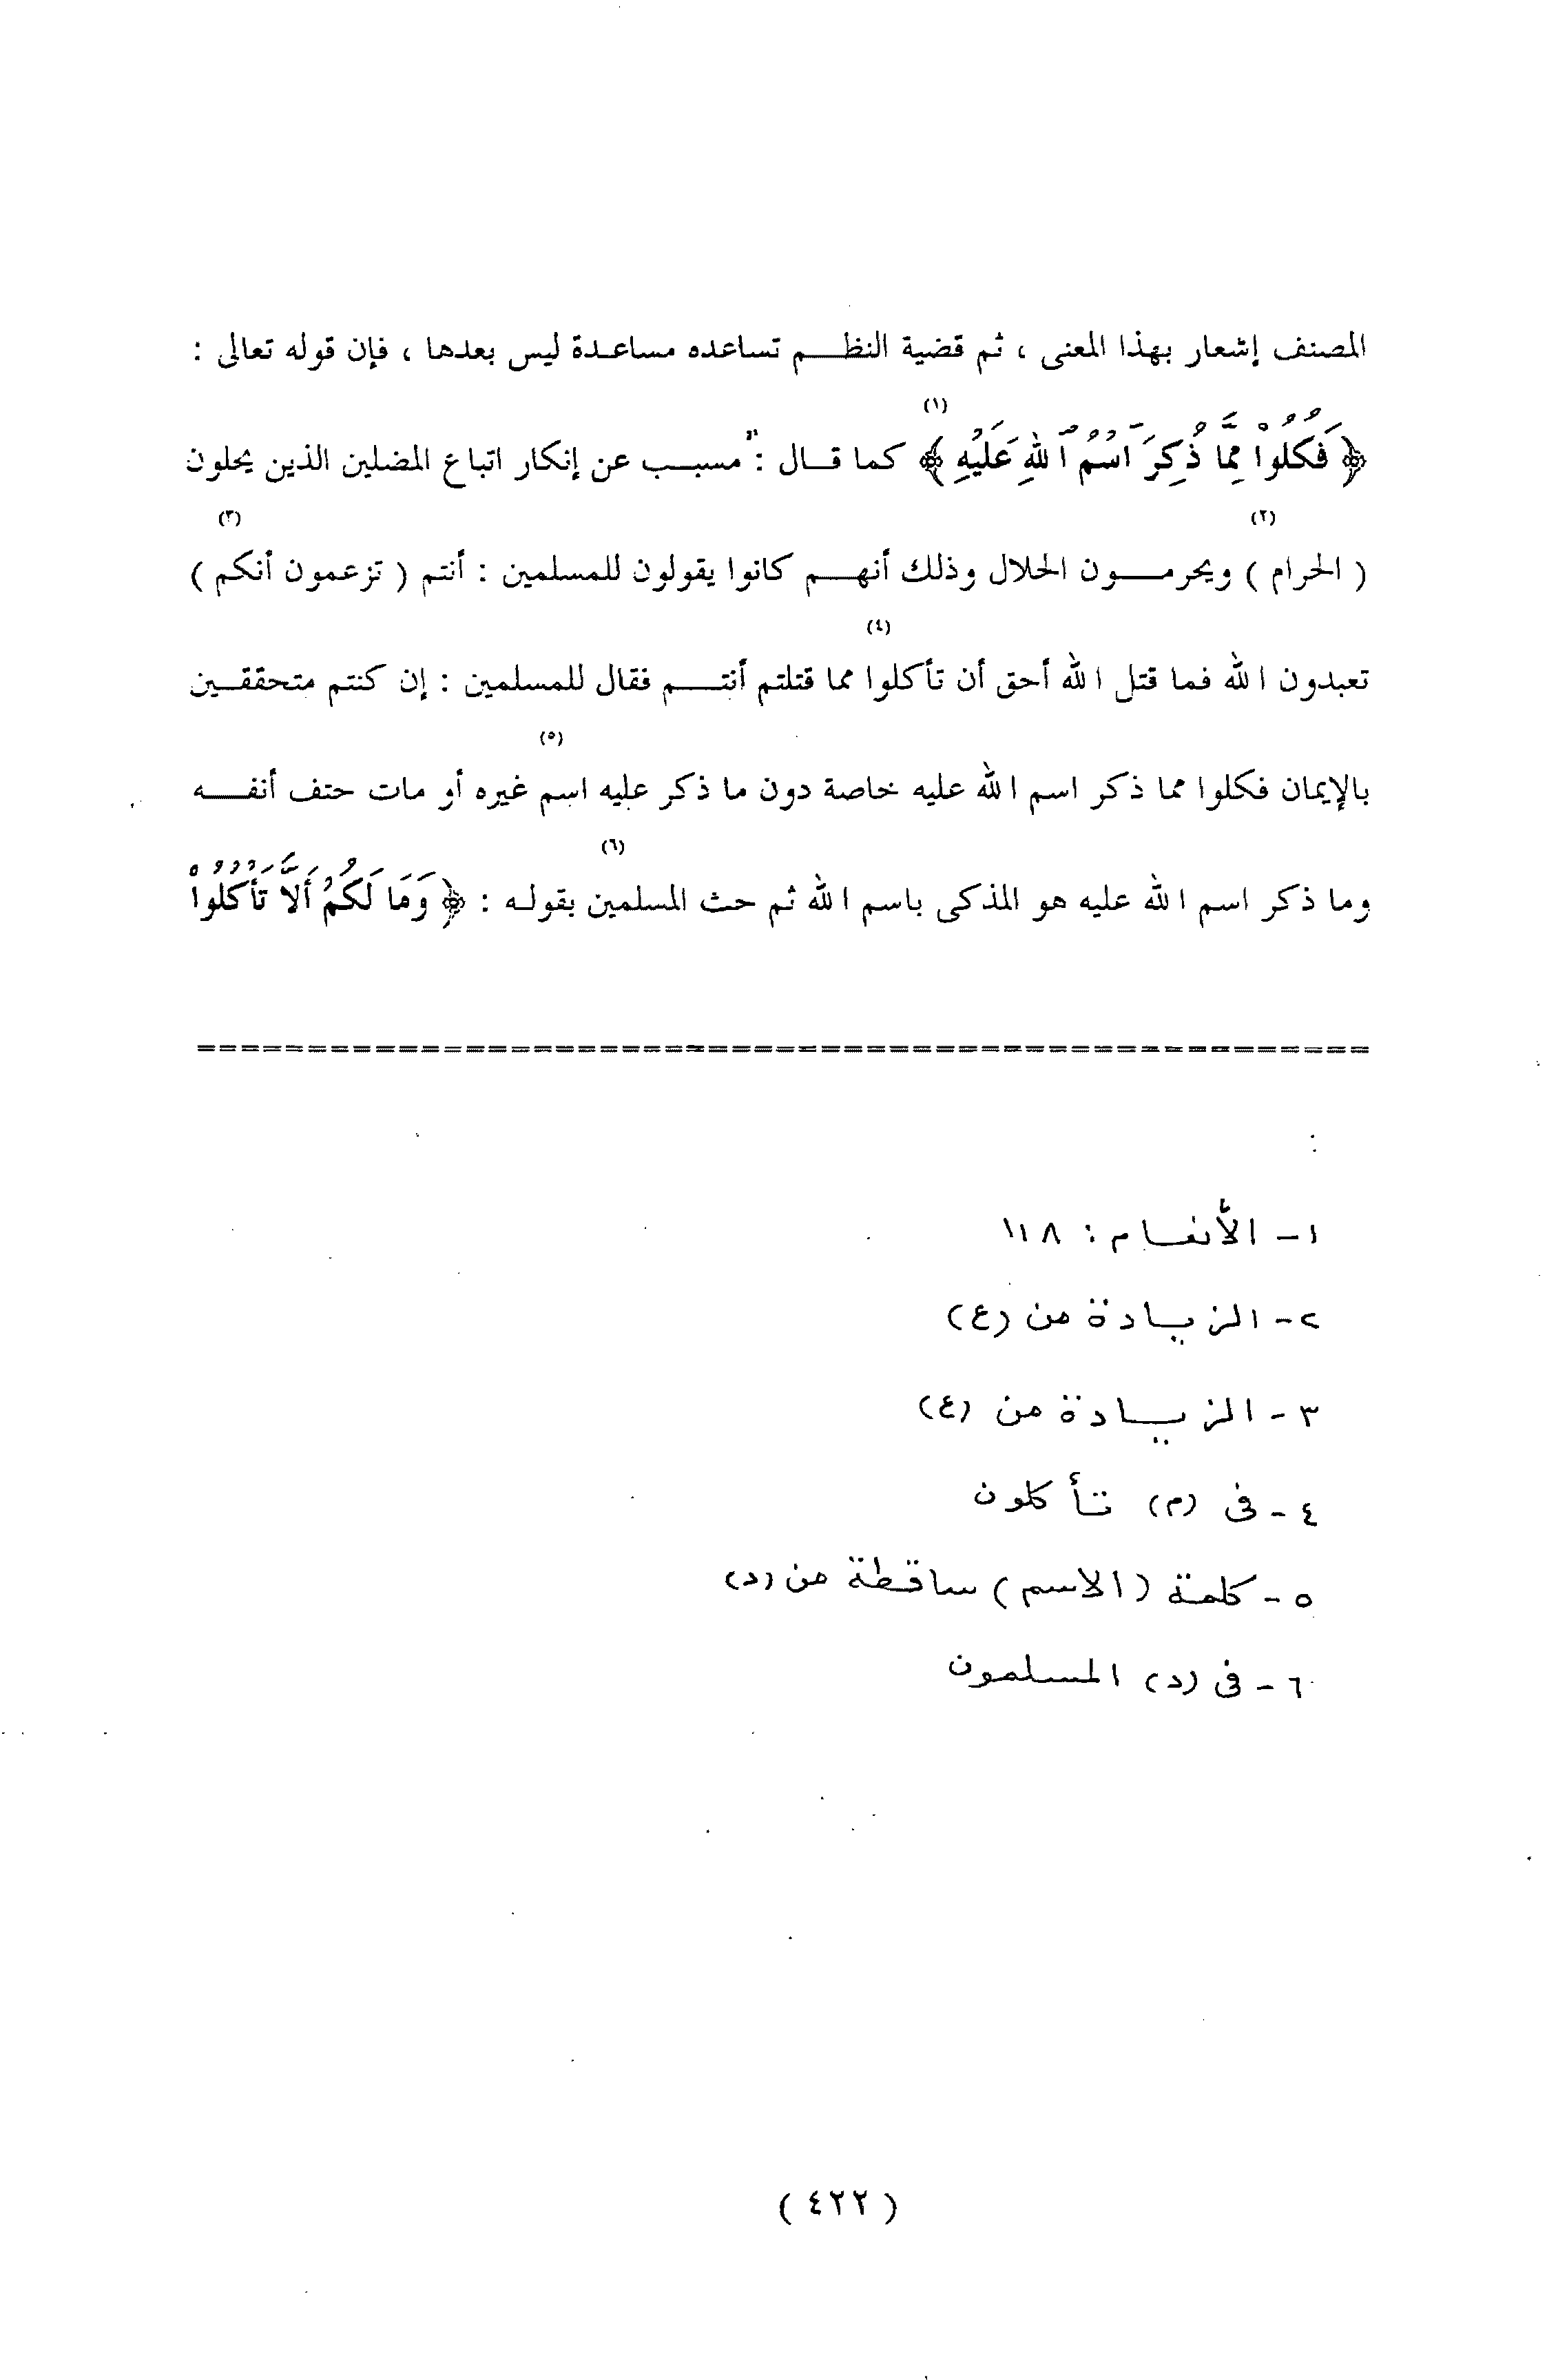 المصنف إشعار بهذا المعنى ، ثم قضية النظــم تساعده مساعدة ليس بعدها ، فإن قوله تعالى :
(١)
﴿ فَكُلُوا۟ مِمَّا ذُكِرَ ٱسْمُ ٱللَّهِ عَلَيْهِ ﴾ كما قــال : " مسبــب عن إنكار اتباع المضلين الذين يحلون
(٢) (٣)
( الحرام ) ويحرمــون الحلال وذلك أنهــم كانوا يقولون للمسلمين : أنتم ( تزعمون أنكم )
(٤)
تعبدون الله فما قتل الله أحق أن تأكلوا مما قتلتم أنتــم فقال للمسلمين : إن كنتم متحققــين
(٥)
بالإيمان فكلوا مما ذكر اسم الله عليه خاصة دون ما ذكر عليه اسم غيره أو مات حتف أنفــه
(٦)
وما ذكر اسم الله عليه هو المذكى باسم الله ثم حث المسلمين بقولـه : ﴿ وَمَا لَكُمْ أَلَّا تَأْكُلُوا۟
١- الأنعــام : ١١٨
٢- الزيــادة من (ع)
٣- الزيــادة من (ع)
٤- فى (م) تأكلون
٥- كلمة (الاسم) ساقطة من (د)
٦- فى (د) المسلمون
( ٤٢٢ )